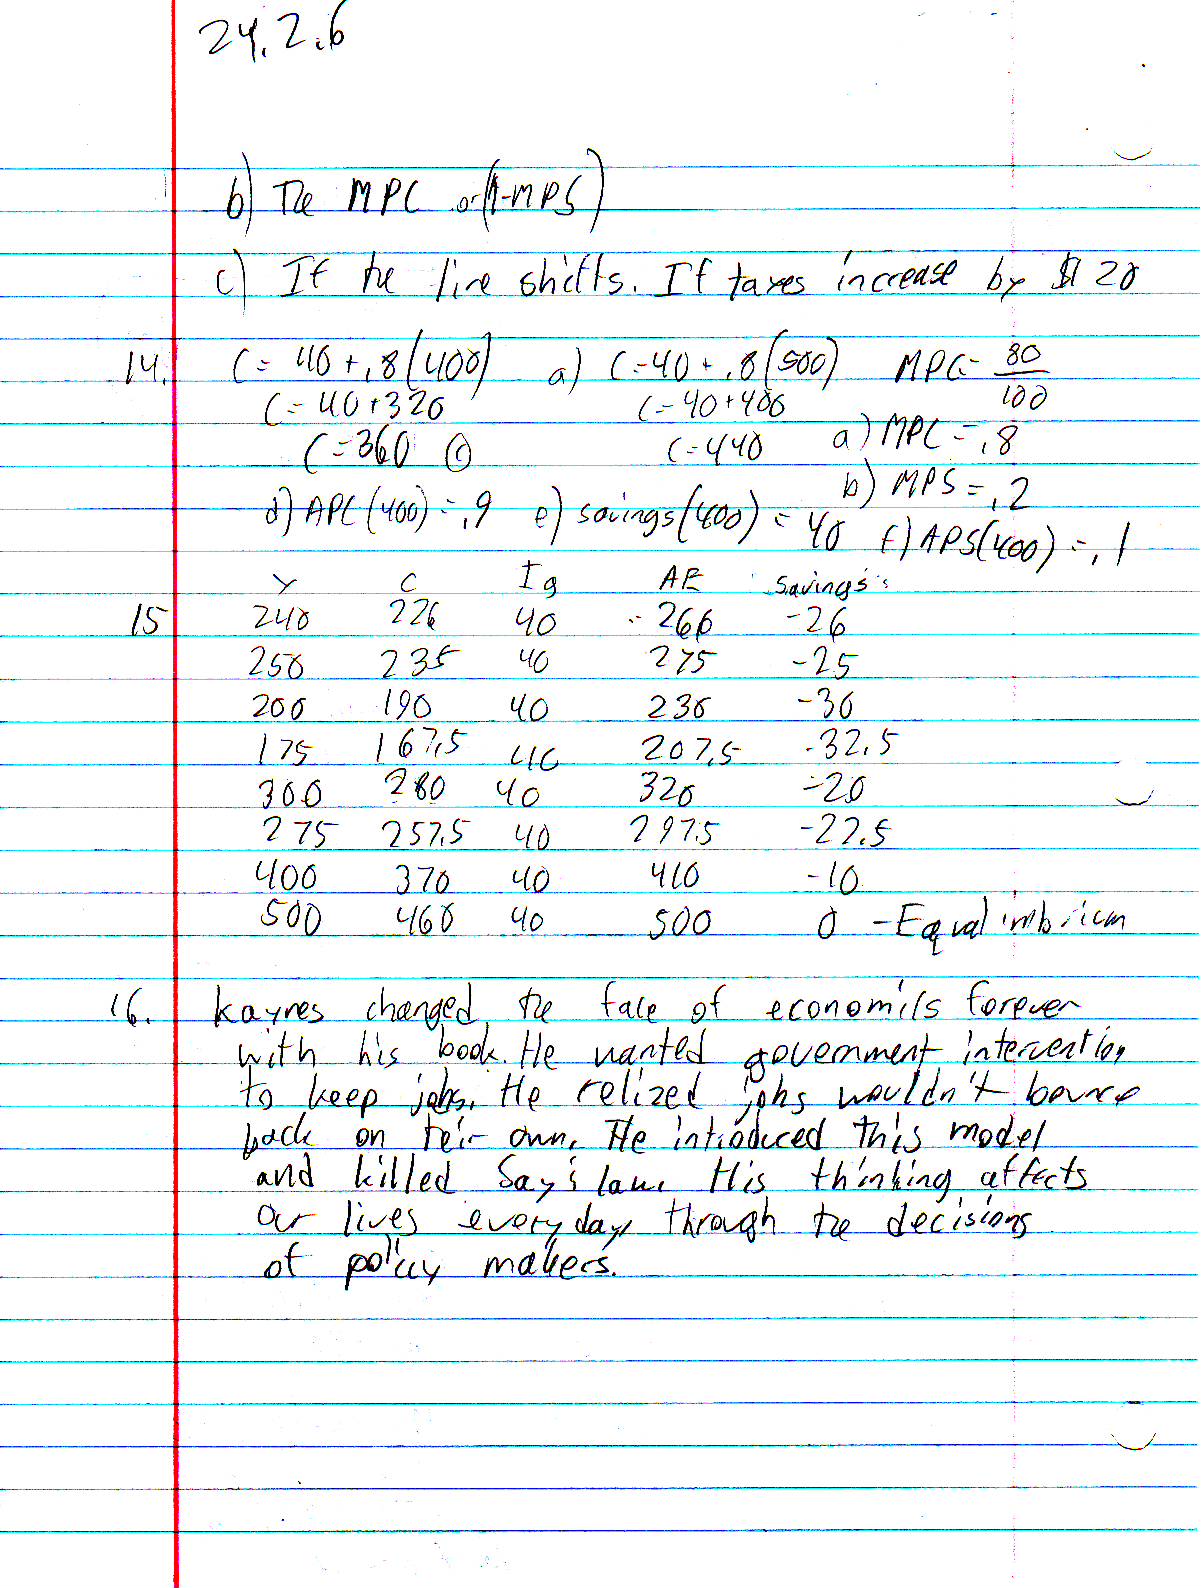 24.2.6
b) The MPC or (1-MPS)
c) If the line shifts. If taxes increase by $120
14. C= 40 + .8(400) a) C=40 + .8(500) MPC= 80/100
C= 40+320 C=40+400
C=360 © C=440 a) MPC = .8
b) MPS = .2
d) APC (400) = .9 e) savings (400) = 40 f) APS(400) = .1
Y C Ig AE Savings
15 240 226 40 266 -26
250 235 40 275 -25
200 190 40 230 -30
175 167.5 40 207.5 -32.5
300 280 40 320 -20
275 257.5 40 297.5 -22.5
400 370 40 410 -10
500 460 40 500 0 - Equalimbrium
16. Kaynes changed the face of economics forever
with his book. He wanted government intervention
to keep jobs. He relized jobs wouldn't bounce
back on teir own. He introduced this model
and killed Say's law. His thinking affects
our lives everyday through the decisions
of policy makers.